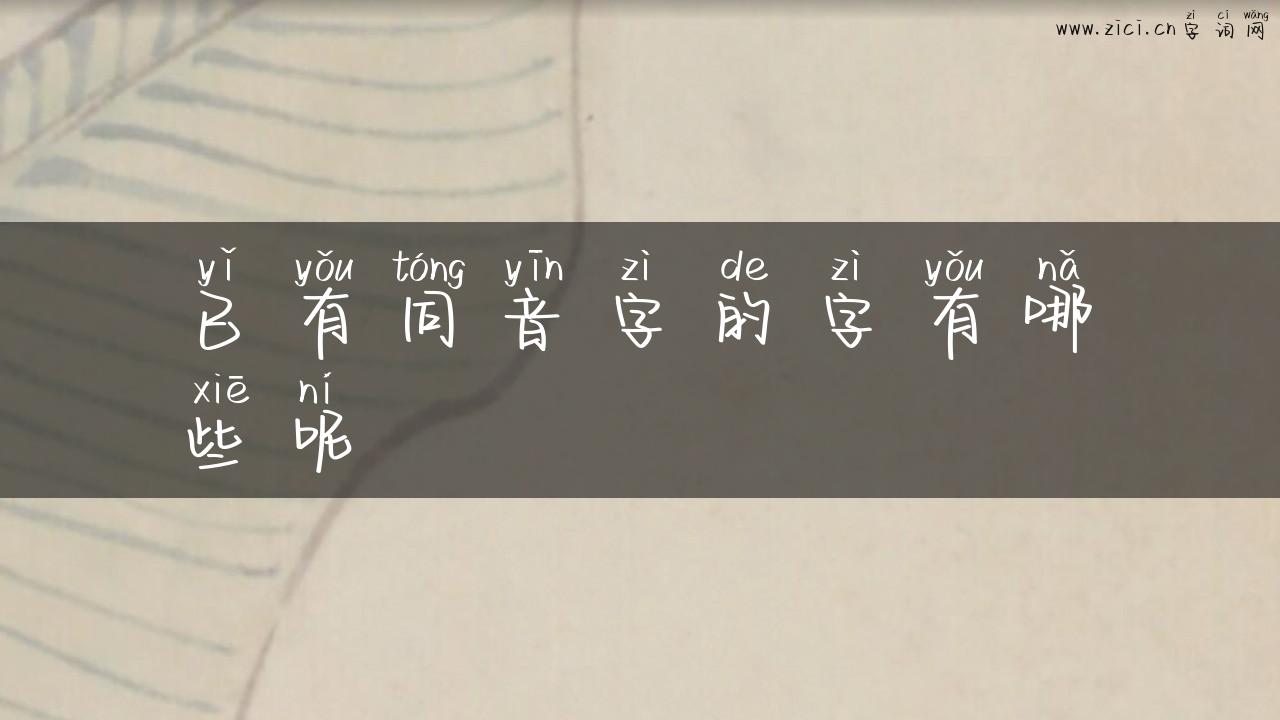 zì cí wǎng
www.zici.cn 字 词 网
yǐ yǒu tóng yīn zì de zì yǒu nǎ
已 有 同 音 字 的 字 有 哪
xiē ní
些 呢